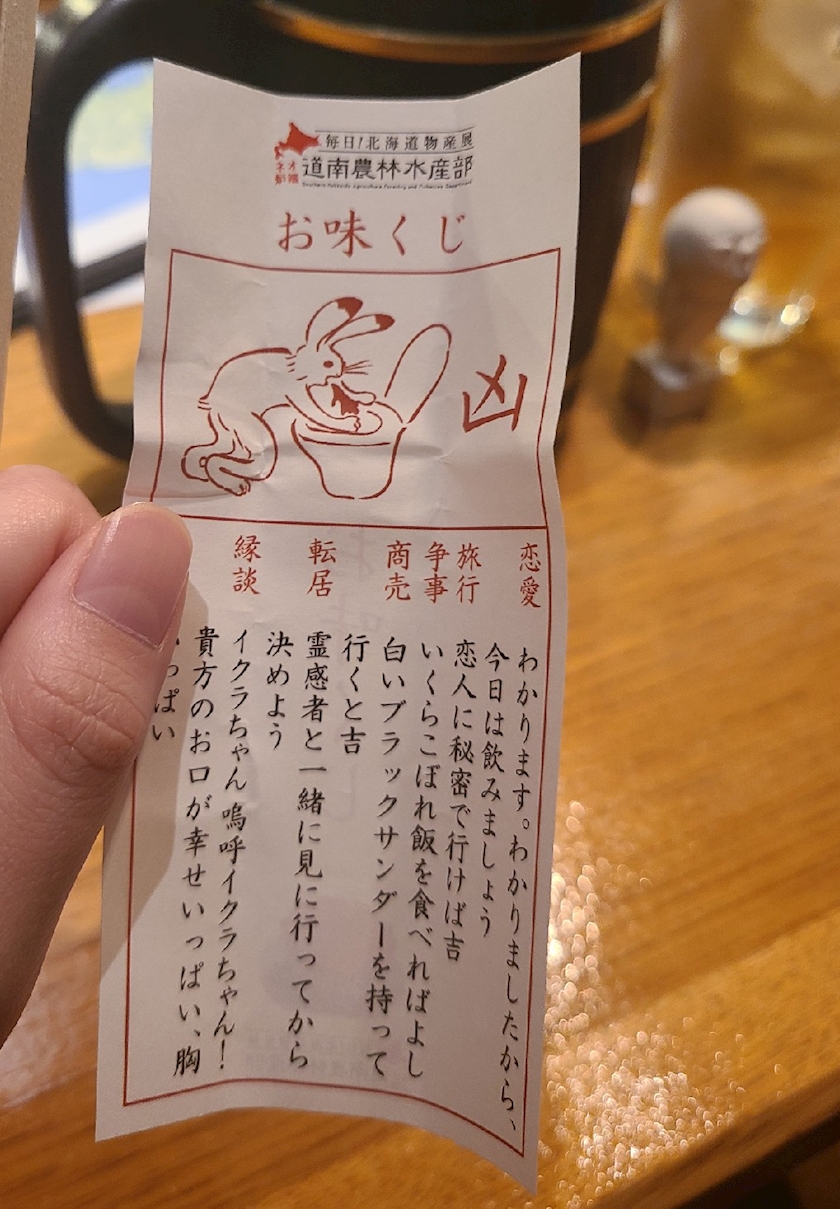 毎日!北海道物産展
ネオ炉端
道南農林水産部
Southern Hokkaido Agriculture Forestry and Fisheries Department
お味くじ
凶
恋愛
わかります。わかりましたから、
今日は飲みましょう
旅行
恋人に秘密で行けば吉
争事
いくらこぼれ飯を食べればよし
商売
白いブラックサンダーを持って
行くと吉
転居
霊感者と一緒に見に行ってから
決めよう
縁談
イクラちゃん嗚呼イクラちゃん!
貴方のお口が幸せいっぱい、胸
いっぱい